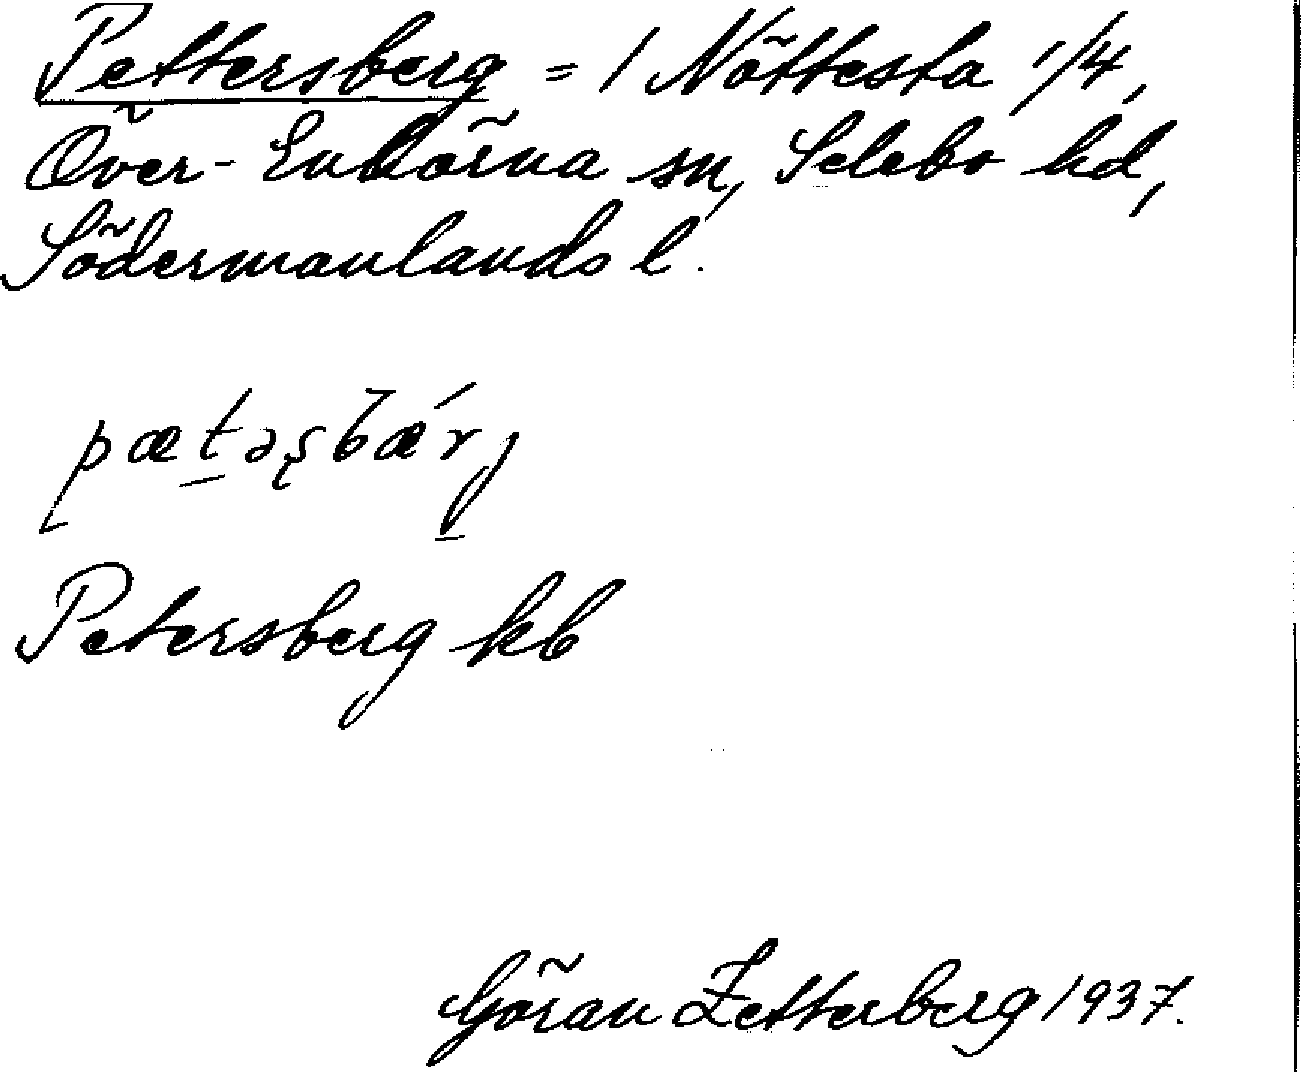 Pettersberg = 1 Nöttesta 1/4,
Över-Enhörna sn, Selebo hd,
Södermanlands l.
pætəʂbǽrj
Petersberg kb
Göran Zetterberg 1937.